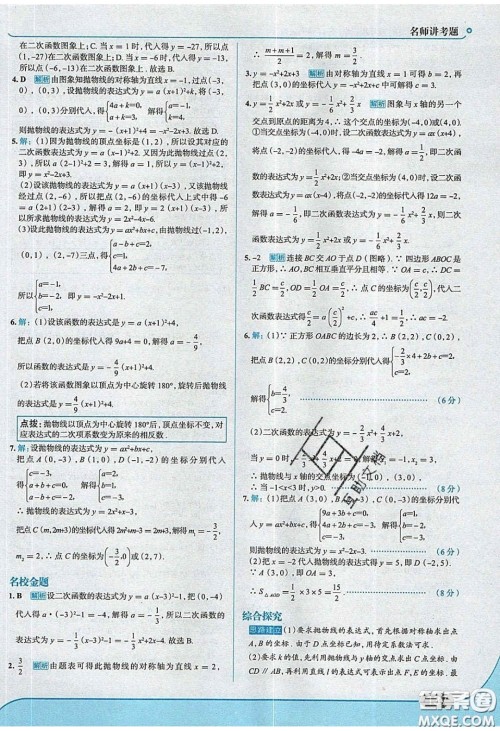 名师讲考题
在二次函数图象上; C. 当 x = 1 时, 代入得 y = -27, 所以点
(1, -27) 在二次函数图象上; D. 当 x = -6 时, 代入得 y =
0, 所以点 (-6, 0) 在二次函数图象上. 故选 B.
4. D 解析 由图象知抛物线的对称轴为直线 x = -1, 过点 (-3,
0), (0, 3), 设抛物线的表达式为 y = a (x+1)²+k, 将 (-3,
0), (0, 3) 分别代入, 得 {4a+k=0, a+k=3, 解得 {a=-1, k=4,
则抛物线的表达式为 y = - (x+1)²+4 = -x²-2x+3. 故选 D.
5. 解: (1) 因为抛物线的顶点坐标是 (1, 2), 所以设其对应的
二次函数表达式为 y = a (x-1)²+2. 又因为抛物线过点 (2,
3), 所以 a (2-1)²+2 = 3, 解得 a = 1, 所以 y = (x-1)²+2,
(2) 设该抛物线的表达式为 y = a (x+1) (x-3), 又该抛物线
经过点 (2, -6), 所以把点 (2, -6) 的坐标代入上式中得 -6
= a (2+1) (2-3), 解得 a = 2, 所以 y = 2 (x+1) (x-3), 所
以所求抛物线的表达式为 y = 2x²-4x-6.
(3) 设此抛物线的表达式为 y = ax²+bx+c, 由抛物线过 (-1, -2),
(0, 1), (2, -7) 三点, 得 {a-b+c=-2, c=1, 4a+2b+c=-7,
所以 {a=-1, b=-2, c=1, 即 y = -x²-2x+1.
6. 解: (1) 设该函数的表达式是 y = a (x+1)²+4,
把点 B (2, 0) 的坐标代入得 9a+4 = 0, 解得 a = -4/9,
所以函数的表达式为 y = -4/9 (x+1)²+4.
(2) 若将该函数图象以顶点为中心旋转 180°, 旋转后抛物
线的表达式为 y = 4/9 (x+1)²+4.
点拨: 抛物线以顶点为中心旋转180°后, 顶点坐标不变, 对
应表达式的二次项系数变为原来的相反数.
7. 解: 设抛物线的表达式为 y = ax²+bx+c,
把点 A (0, -3), B (1, 0), C (2, 7) 的坐标分别代入
把点 C (m, 2m+3) 的坐标代入得 2m²+m-3 = 2m+3, 解得 m₁ = -3/2,
m₂ = 2, ∴ 点 C 的坐标为 (-3/2, 0) 或 (2, 7).
名校金题
1. B 解析 设二次函数的表达式为 y = a (x-3)²-1, 把 (0, -4)
代入得 a · (-3)²-1 = -4, 解得 a = -1/3, 所以这个二次函数
的表达式为 y = -1/3 (x-3)²-1. 故选 B.
2. 3/2 解析 由题表可得此抛物线的对称轴为直线 x = 2,
∴ (m+m+1)/2 = 2, 解得 m = 3/2.
3. y = -x²+2x+3 解析 由对称轴为直线 x = 1 可得 b = 2, 把
(0, 3) 代入可得 c = 3, 所以该二次函数的表达式为 y = -x²
+2x+3.
4. y = 1/2 x²+2x 或 y = -1/6 x²+1/3 x 解析 图象与 x 轴的另一个
交点到原点的距离为 4, ∴ 这个交点的坐标为 (-4, 0) 或 (4, 0).
①当交点坐标为 (-4, 0) 时, 设二次函数表达式为 y = ax (x+4),
把 (-2, -2) 的坐标代入得 -4a = -2, 解得 a = 1/2, 即二次函
数的表达式为 y = 1/2 x²+2x; ②当交点坐标为 (4, 0) 时, 设二次函
数的表达式为 y = ax (x-4), 把 (-2, -2) 的坐标代入得 12a = -2,
解得 a = -1/6, 即二次函数的表达式为 y = -1/6 x²+2/3 x. 综上, 二次
函数表达式为 y = 1/2 x²+2x 或 y = -1/6 x²+2/3 x.
5. -2 解析 连接 BC 交 AO 于点 D (图略). ∵ 四边形 ABOC 是
正方形, ∴ BC, OA 相互垂直平分且相等. ∵ OA = c, ∴ DC =
1/2 BC = c/2, OD = 1/2 OA = c/2, ∴ 点 C 的坐标为 (c/2, c/2), 代入二
次函数表达式得 c/2 = a(c/2)²+c, ∴ ac/4+1 = 1/2, ∴ ac = -2.
6. 解: (1) ∵ 正方形 OABC 的边长为 2, ∴ B (2, 2), C (0, 2),
解得 {b=4/3, c=2. (6 分)
(2) 二次函数的表达式为 y = -2/3 x²+4/3 x+2,
∴ 抛物线与 x 轴的交点坐标为 (-1, 0), (3, 0),
∴ 当 -1<x<3 时, y>0. (8 分)
则抛物线的表达式为 y = x²-2x-3. (6 分)
(2) 把 x = -2 代入抛物线的表达式得 y = 5, 即 D (-2, 5),
∵ A (3, 0), 即 OA = 3,
∴ S△AOD = 1/2 ×3×5 = 15/2. (8 分)
综合探究
思路建立 (1) 要求抛物线的表达式, 首先根据对称轴求出点
A, B 的坐标, 已知抛物线上三点, 用待定系数法可求.
(2) 要求 k 的值, 先利用抛物线与 y 轴的交点求出点 C 的坐标, 由
CD // AB, 再利用直线 l 的表达式可表示出点 F, E 的坐标. 最
答案圈
MXQE.COM